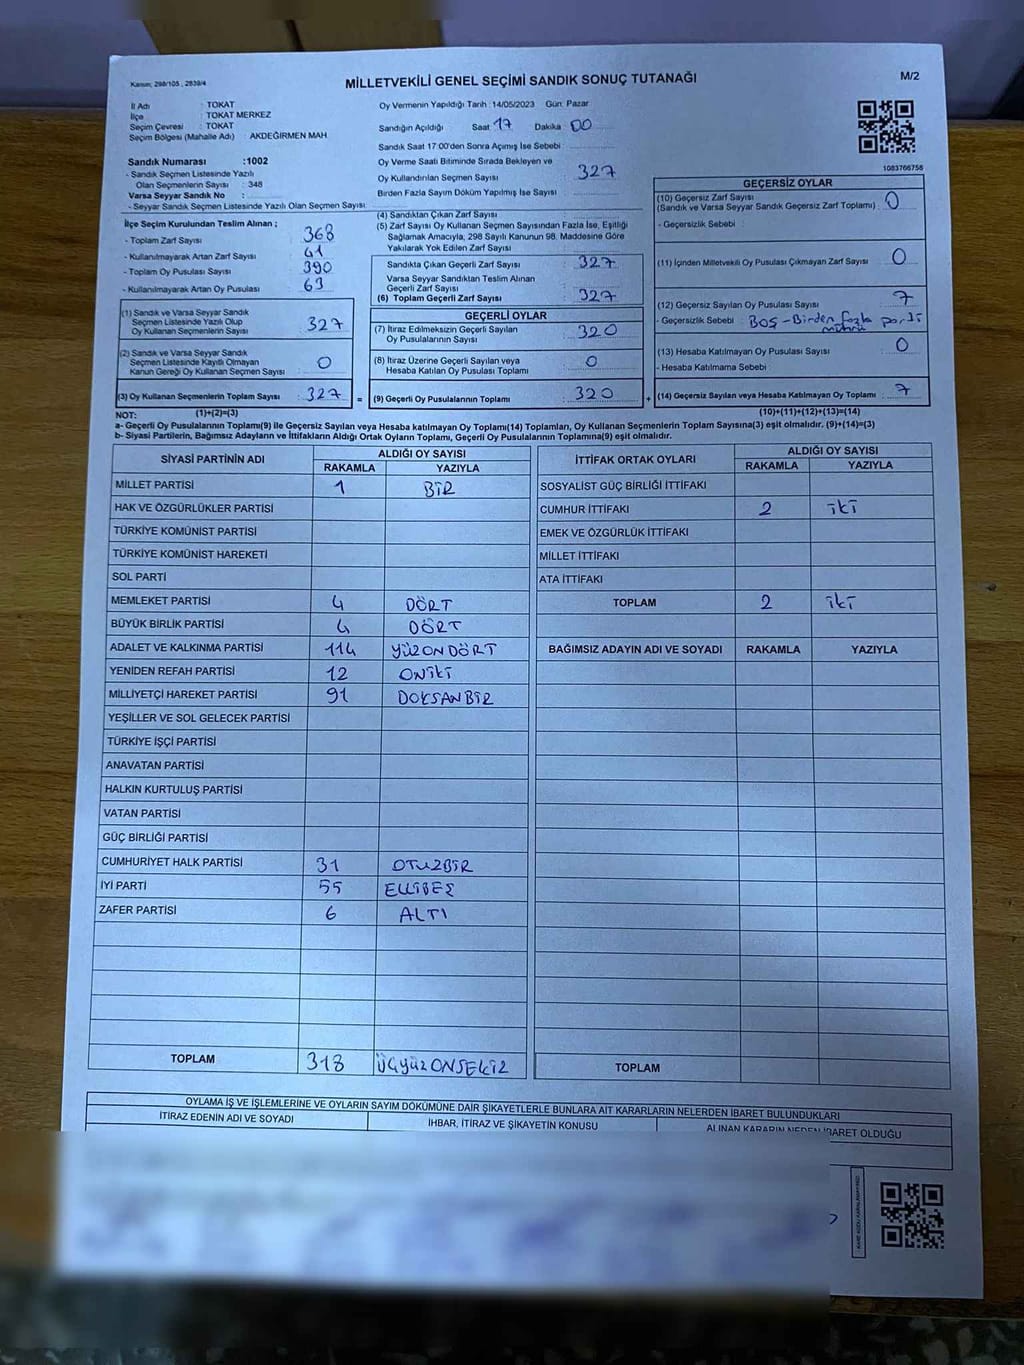 Kanun; 298/105 , 2839/4
MİLLETVEKİLİ GENEL SEÇİMİ SANDIK SONUÇ TUTANAĞI
M/2
İl Adı : TOKAT
İlçe : TOKAT MERKEZ
Seçim Çevresi : TOKAT
Seçim Bölgesi (Mahalle Adı) : AKDEĞİRMEN MAH.
Sandık Numarası :1002
- Sandık Seçmen Listesinde Yazılı
Olan Seçmenlerin Sayısı : 348
Varsa Seyyar Sandık No :
- Seyyar Sandık Seçmen Listesinde Yazılı Olan Seçmen Sayısı:
Oy Vermenin Yapıldığı Tarih :14/05/2023 Gün: Pazar
Sandığın Açıldığı Saat 17 Dakika 00
Sandık Saat 17:00'den Sonra Açımış İse Sebebi :
Oy Verme Saati Bitiminde Sırada Bekleyen ve
Oy Kullandırılan Seçmen Sayısı : 327
Birden Fazla Sayım Döküm Yapılmış İse Sayısı :
1083766758
İlçe Seçim Kurulundan Teslim Alınan ;
- Toplam Zarf Sayısı : 368
- Kullanılmayarak Artan Zarf Sayısı : 41
- Toplam Oy Pusulası Sayısı : 390
- Kullanılmayarak Artan Oy Pusulası : 63
(1) Sandık ve Varsa Seyyar Sandık
Seçmen Listesinde Yazılı Olup
Oy Kullanan Seçmenlerin Sayısı : 327
(2) Sandık ve Varsa Seyyar Sandık
Seçmen Listesinde Kayıtlı Olmayan
Kanun Gereği Oy Kullanan Seçmen Sayısı : 0
(3) Oy Kullanan Seçmenlerin Toplam Sayısı : 327
(1)+(2)=(3)
(4) Sandıktan Çıkan Zarf Sayısı :
(5) Zarf Sayısı Oy Kullanan Seçmen Sayısından Fazla İse, Eşitliği
Sağlamak Amacıyla, 298 Sayılı Kanunun 98. Maddesine Göre
Yakılarak Yok Edilen Zarf Sayısı :
Sandıkta Çıkan Geçerli Zarf Sayısı : 327
Varsa Seyyar Sandıktan Teslim Alınan
Geçerli Zarf Sayısı :
(6) Toplam Geçerli Zarf Sayısı : 327
GEÇERLİ OYLAR
(7) İtiraz Edilmeksizin Geçerli Sayılan
Oy Pusulalarının Sayısı : 320
(8) İtiraz Üzerine Geçerli Sayılan veya
Hesaba Katılan Oy Pusulası Toplamı : 0
= (9) Geçerli Oy Pusulalarının Toplamı : 320 +
GEÇERSİZ OYLAR
(10) Geçersiz Zarf Sayısı
(Sandık ve Varsa Seyyar Sandık Geçersiz Zarf Toplamı) : 0
- Geçersizlik Sebebi :
(11) İçinden Milletvekili Oy Pusulası Çıkmayan Zarf Sayısı : 0
(12) Geçersiz Sayılan Oy Pusulası Sayısı : 7
- Geçersizlik Sebebi : BOŞ - Birden fazla
(13) Hesaba Katılmayan Oy Pusulası Sayısı : 0
- Hesaba Katılmama Sebebi :
(14) Geçersiz Sayılan veya Hesaba Katılmayan Oy Toplamı : 7
(10)+(11)+(12)+(13)=(14)
NOT:
a- Geçerli Oy Pusulalarının Toplamı(9) ile Geçersiz Sayılan veya Hesaba katılmayan Oy Toplamı(14) Toplamları, Oy Kullanan Seçmenlerin Toplam Sayısına(3) eşit olmalıdır. (9)+(14)=(3)
b- Siyasi Partilerin, Bağımsız Adayların ve İttifakların Aldığı Ortak Oyların Toplamı, Geçerli Oy Pusulalarının Toplamına(9) eşit olmalıdır.
SİYASİ PARTİNİN ADI ALDIĞI OY SAYISI
RAKAMLA YAZIYLA
MİLLET PARTİSİ 1 BİR
HAK VE ÖZGÜRLÜKLER PARTİSİ
TÜRKİYE KOMÜNİST PARTİSİ
TÜRKİYE KOMÜNİST HAREKETİ
SOL PARTİ
MEMLEKET PARTİSİ 4 DÖRT
BÜYÜK BİRLİK PARTİSİ 4 DÖRT
ADALET VE KALKINMA PARTİSİ 114 YÜZONDÖRT
YENİDEN REFAH PARTİSİ 12 ONİKİ
MİLLİYETÇİ HAREKET PARTİSİ 91 DOKSANBİR
YEŞİLLER VE SOL GELECEK PARTİSİ
TÜRKİYE İŞÇİ PARTİSİ
ANAVATAN PARTİSİ
HALKIN KURTULUŞ PARTİSİ
VATAN PARTİSİ
GÜÇ BİRLİĞİ PARTİSİ
CUMHURİYET HALK PARTİSİ 31 OTUZBİR
İYİ PARTİ 55 ELLİBEŞ
ZAFER PARTİSİ 6 ALTI
TOPLAM 318 ÜÇYÜZONSEKİZ
İTTİFAK ORTAK OYLARI ALDIĞI OY SAYISI
RAKAMLA YAZIYLA
SOSYALİST GÜÇ BİRLİĞİ İTTİFAKI
CUMHUR İTTİFAKI 2 İKİ
EMEK VE ÖZGÜRLÜK İTTİFAKI
MİLLET İTTİFAKI
ATA İTTİFAKI
TOPLAM 2 İKİ
BAĞIMSIZ ADAYIN ADI VE SOYADI RAKAMLA YAZIYLA
TOPLAM
OYLAMA İŞ VE İŞLEMLERİNE VE OYLARIN SAYIM DÖKÜMÜNE DAİR ŞİKAYETLERLE BUNLARA AİT KARARLARIN NELERDEN İBARET BULUNDUKLARI
İTİRAZ EDENİN ADI VE SOYADI İHBAR, İTİRAZ VE ŞİKAYETİN KONUSU ALINAN KARARIN NEDEN İBARET OLDUĞU